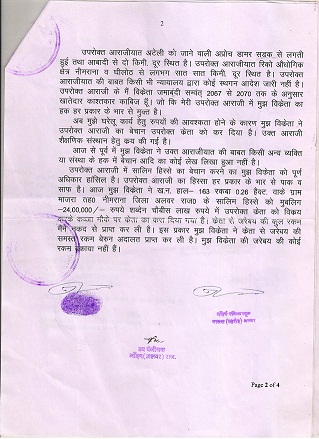 2
उपरोक्त आराजीयात अटेली को जाने वाली अप्रोच डामर सड़क से लगती
हुई तथा आबादी से दो किमी. दूर स्थित है। उपरोक्त आराजीयात रिको औधोगिक
क्षेत्र नीमराना व घीलोठ से लगभग सात सात किमी. दूर स्थित है। उपरोक्त
आराजीयात की बाबत किसी भी न्यायालय द्वारा कोई स्थगन आदेश जारी नहीं है।
उपरोक्त आराजी के मैं विक्रेता जमाबन्दी सम्वत् 2067 से 2070 तक के अनुसार
खातेदार काश्तकार काबिज हूँ। जो कि मेरी उपरोक्त आराजी में मुझ विक्रेता का
हक हर प्रकार के भार से मुक्त है।
अब मुझे घरेलू कार्य हेतु रुपयों की आवश्यकता होने के कारण मुझ विक्रेता ने
उपरोक्त आराजी का बेचान उपरोक्त क्रेता को कर दिया है। उक्त आराजी
शैक्षणिक संस्थान हेतु क्रय की गई है।
आज से पूर्व में मुझ विक्रेता ने उक्त आराजीयात की बाबत किसी अन्य व्यक्ति
या संस्था के हक में बेचान आदि का कोई लेख लिखा हुआ नहीं है।
उपरोक्त आराजी में सालिम हिस्से का बेचान करने का मुझ विक्रेता को पूर्ण
अधिकार हासिल है। उपरोक्त आराजी का हिस्सा हर प्रकार के भार से पाक व
साफ है। आज मुझ विक्रेता ने ख.न. हाल– 163 रकबा 0.26 हैक्ट. वाके ग्राम
माजरा तह0 नीमराना जिला अलवर राज0 के सालिम हिस्से को मुबलिग
–24,00,000/– रुपये शब्देन चौबीस लाख रुपये में उपरोक्त क्रेता को विक्रय
करके कब्जा मौके पर क्रेता का करा दिया गया है। क्रेता से जरेबय की कुल रकम
मैंने नकद से प्राप्त कर ली है। इस प्रकार मुझ विक्रेता ने क्रेता से जरेबय की
समस्त रकम बेरुन अदालत प्राप्त कर ली है। मुझ विक्रेता की जरेबय की कोई
रकम बकाया नहीं है।
उप पंजीयक
Page 2 of 4